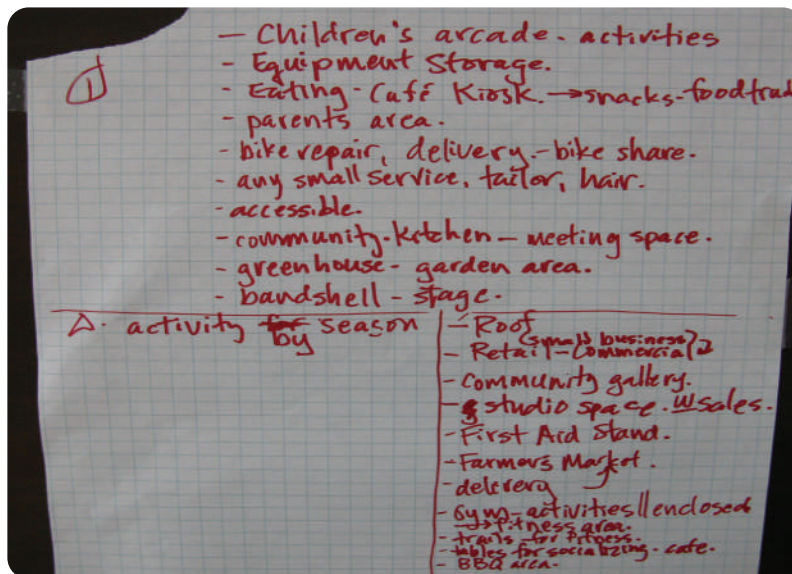 ①
- Children's arcade. activities
- Equipment Storage.
- Eating-Café Kiosk. → snacks-food
- parents area.
- bike repair, delivery.-bike share.
- any small service, tailor, hair.
- accessible.
- community-kitchen - meeting space.
- greenhouse - garden area.
- bandshell - stage.
△. activity by season
- Roof
(small business)
- Retail - Commercial
- community gallery.
- studio space. w sales.
- First Aid Stand.
- Farmers Market.
- delivery
- Gym - activities || enclosed
→ fitness area.
- trails for fitness.
- tables for socializing. cafe.
- BBQ area.